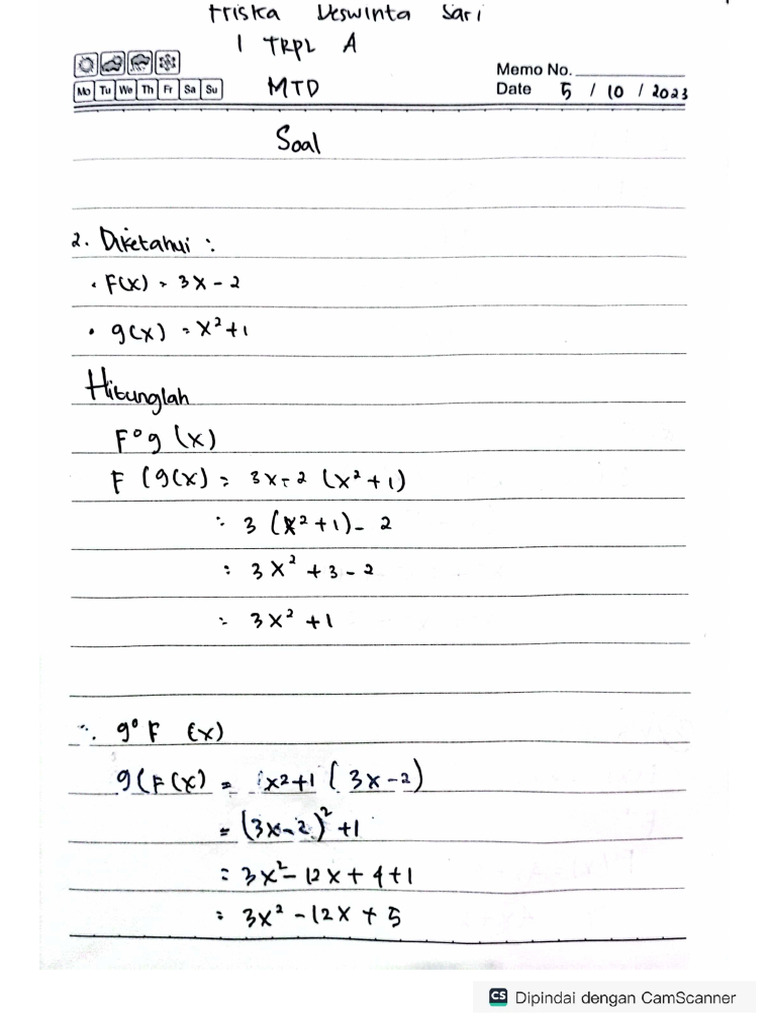 Friska Deswinta Sari
1 TRPL A
MTD
Mo Tu We Th Fr Sa Su
Memo No.
Date 5 / 10 / 2023
Soal
2. Diketahui :
• F(x) = 3x - 2
• g(x) = x² + 1
Hitunglah
F°g (x)
F (g(x) = 3x - 2 (x² + 1)
= 3 (x² + 1) - 2
= 3x² + 3 - 2
= 3x² + 1
g°F (x)
g(F(x) = x² + 1 (3x - 2)
= (3x - 2)² + 1
= 3x² - 12x + 4 + 1
= 3x² - 12x + 5
CS Dipindai dengan CamScanner